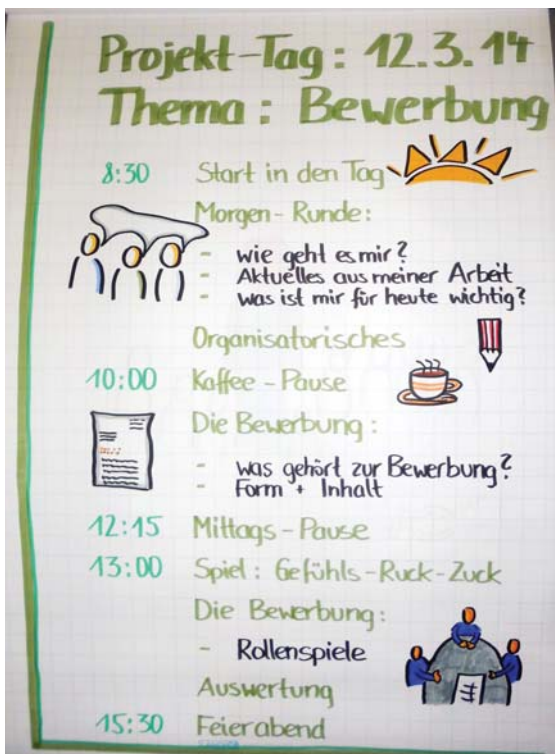 Projekt-Tag: 12.3.14
Thema: Bewerbung
8:30 Start in den Tag
Morgen-Runde:
- wie geht es mir?
- Aktuelles aus meiner Arbeit
- was ist mir für heute wichtig?
Organisatorisches
10:00 Kaffee-Pause
Die Bewerbung:
- was gehört zur Bewerbung?
- Form + Inhalt
12:15 Mittags-Pause
13:00 Spiel: Gefühls-Ruck-Zuck
Die Bewerbung:
- Rollenspiele
Auswertung
15:30 Feierabend